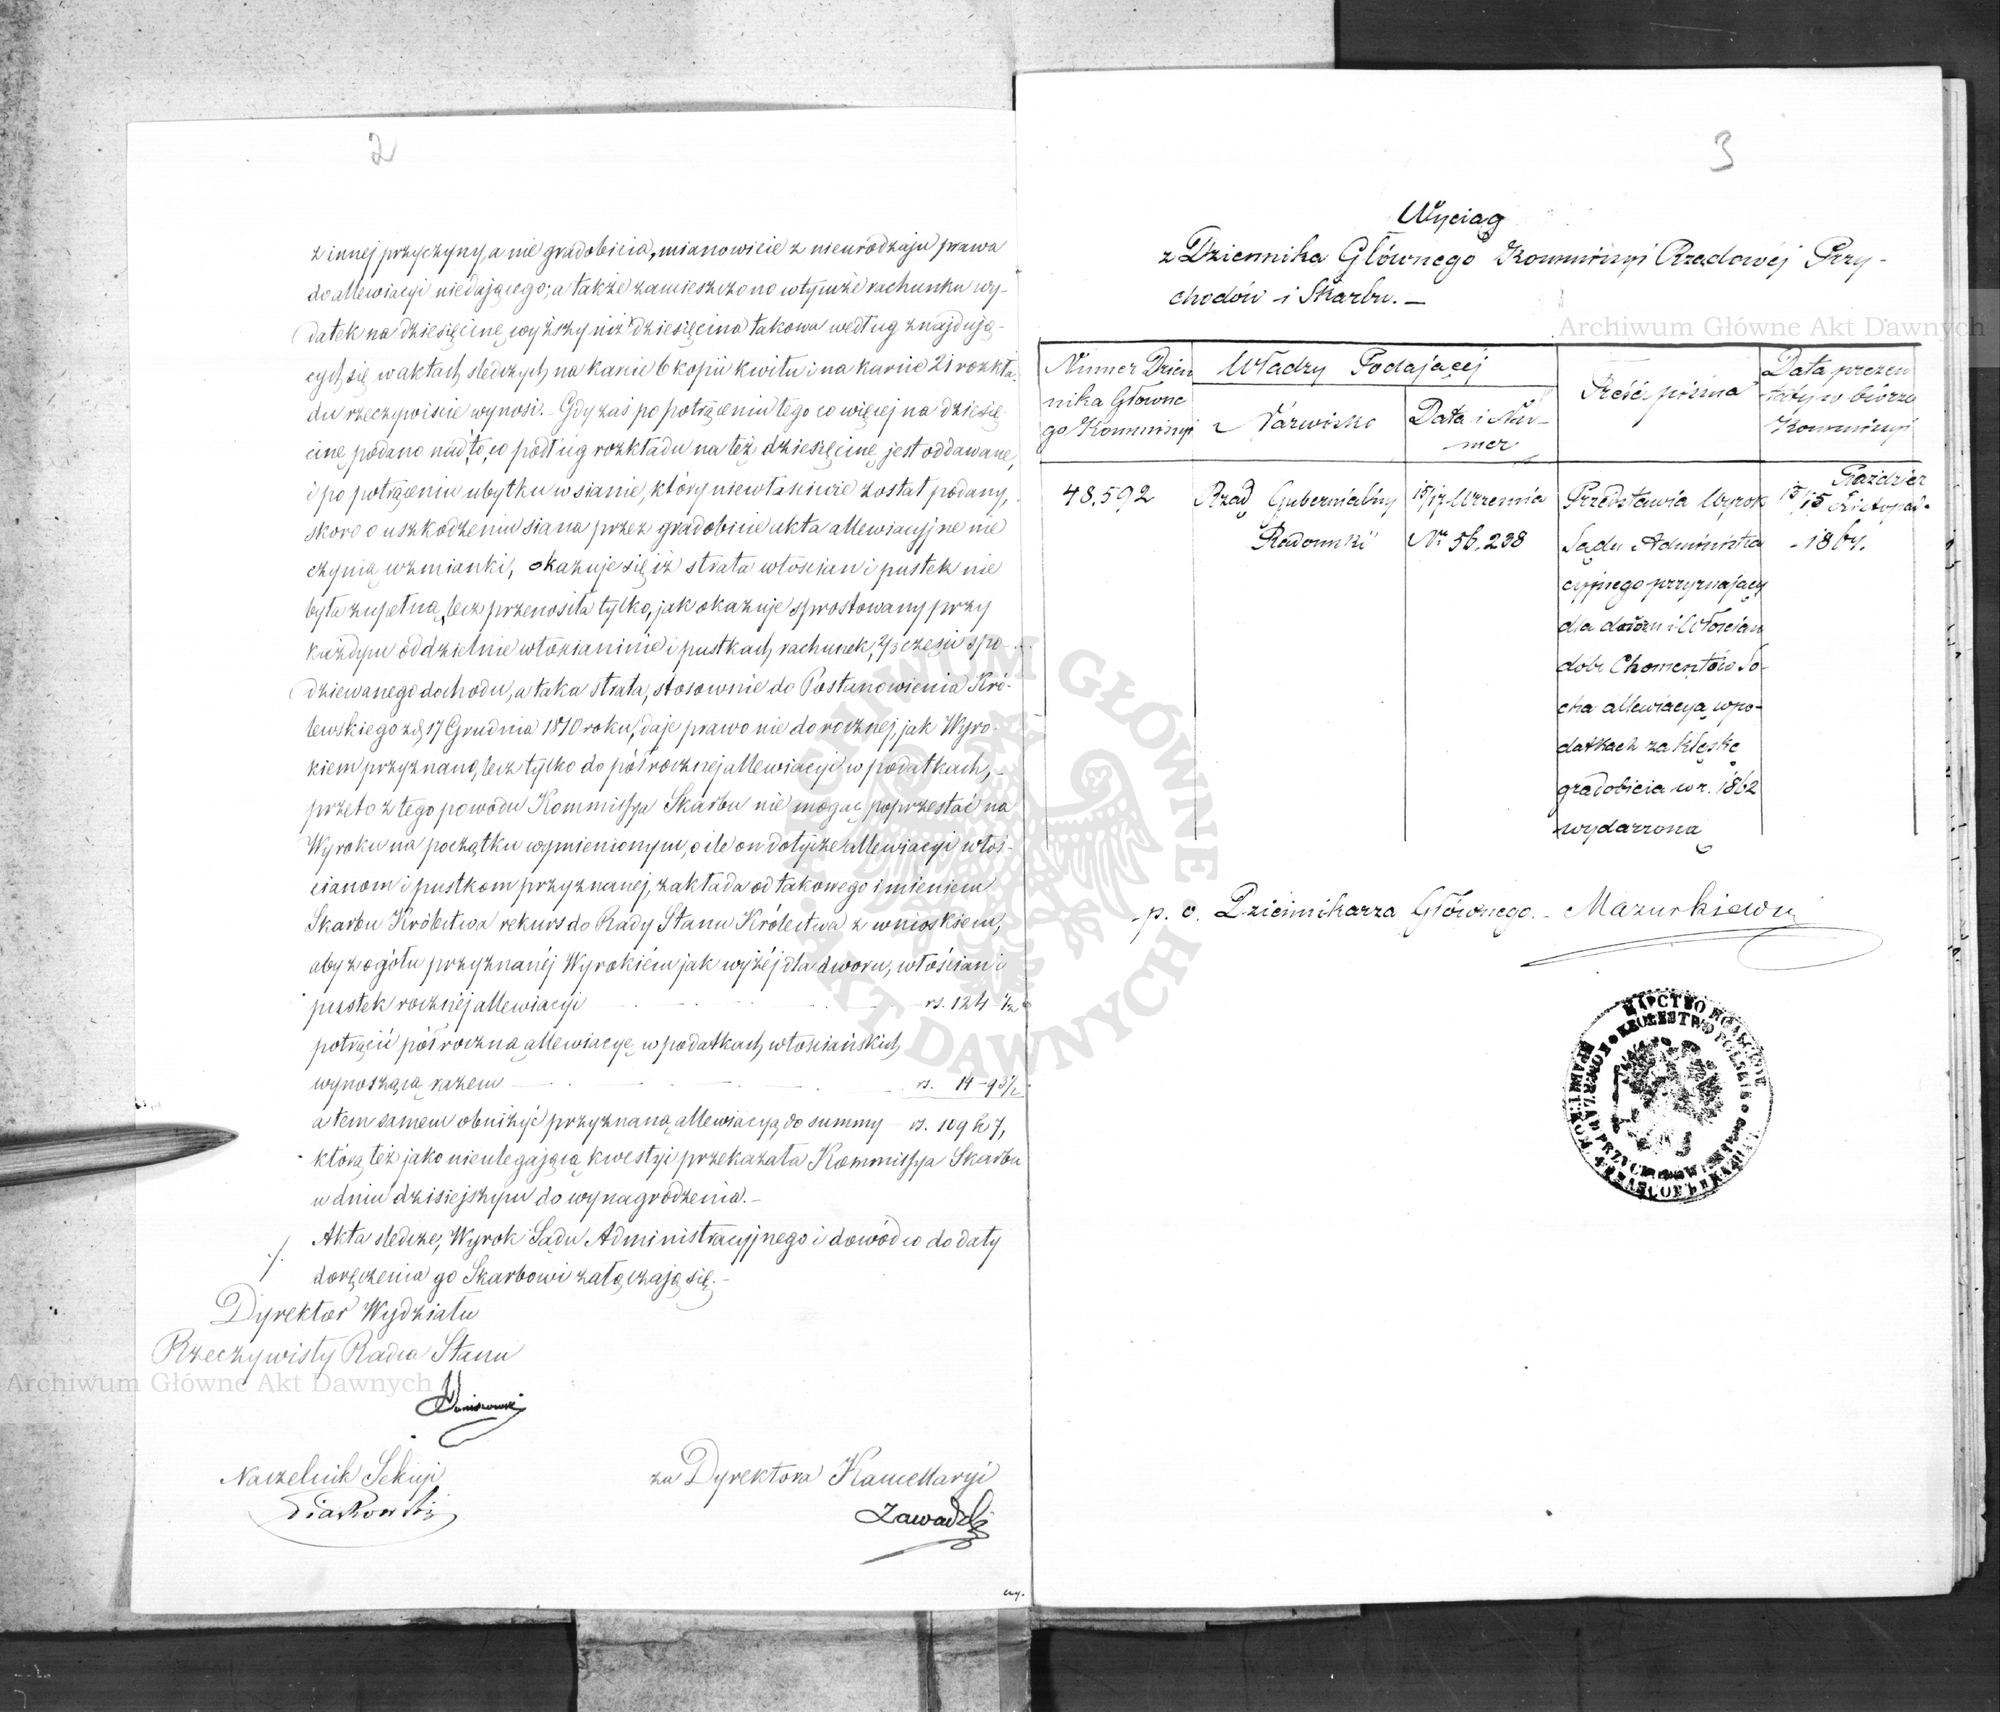 2
z innej przyczyny a nie gradobicia, mianowicie z nieurodzaju prawa
do allewiacyi niedającego; a także zamieszczono w tymże rachunku wy-
datek na dziesięcinę wyższy niż dziesięcina takowa według znajdują-
cych się w aktach śledczych na karcie 6 kopii kwitu i na karcie 21 rozkła-
du rzeczywiście wynosi. – Gdy zaś po potrąceniu tego co więcej na dziesię-
cinę podano nad to, co podług rozkładu na też dziesięcinę jest oddawane,
i po potrąceniu ubytku w sianie, który niewłaściwie został podany,
skoro o uszkodzeniu siana przez gradobicie akta allewiacyjne nie
czynią wzmianki, okazuje się iż strata włościan i pustek nie
była zupełną, lecz przenosiła tylko, jak okazuje sprostowany przy
każdym oddzielnie włościaninie i pustkach rachunek, 2/3 części spo-
dziewanego dochodu, a taka strata, stosownie do Postanowienia Kró-
lewskiego z d. 17 Grudnia 1810 roku, daje prawo nie do rocznej, jak Wyro-
kiem przyznano, lecz tylko do półrocznej allewiacyi w podatkach, –
przeto z tego powodu Kommissya Skarbu nie mogąc poprzestać na
Wyroku na początku wymienionym, o ile on dotyczé allewiacyi włoś-
cianom i pustkom przyznanej, zakłada od takowego imieniem
Skarbu Królestwa rekurs do Rady Stanu Królestwa z wnioskiem,
aby z ogółu przyznanéj Wyrokiem jak wyżéj dla dworu, włościan i
pustek rocznéj allewiacyi rs. 124 1/2
potrącić półroczną allewiacyę w podatkach włościańskich
wynoszącą razem rs. 14 – 93 1/2
a tem samem obniżyć przyznaną allewiacyą do summy rs. 109 k 7,
którą też jako nieulegającą kwestyi przekazała Kommissya Skarbu
w dniu dzisiejszym do wynagrodzenia. –
Akta śledcze, Wyrok Sądu Administracyjnego i dowód co do daty
doręczenia go Skarbowi załączają się. –
Dyrektor Wydziału
Rzeczywisty Radca Stanu
Naczelnik Sekcyi
za Dyrektora Kancellaryi
Zawadzki
3
Wyciąg
z Dziennika Głównego Kommissyi Rządowéj Przy-
chodów i Skarbu. –
Numer Dzien
nika Główne
go Kommissyi
Władzy Podającéj
Nazwisko
Data i Nu-
mer
Treść pisma
Data prezen
taty w biórze
Kommissyi
48.592
Rząd Gubernialny
Radomski
Września
Nr 56,238
Przedstawia Wyrok
Sądu Administra
cyjnego przyznający
dla dworu i Włościan
dóbr Chomentów So-
cha allewiacyą w po-
datkach za klęskę
gradobicia w r. 1862
wydarzoną
Październ
Listopad
1864.
p. o. Dziennikarza Głównego. – Mazurkiewicz
KRÓLESTWO POLSKIE
Archiwum Główne Akt Dawnych
Archiwum Główne Akt Dawnych
ARCHIWUM GŁÓWNE AKT DAWNYCH